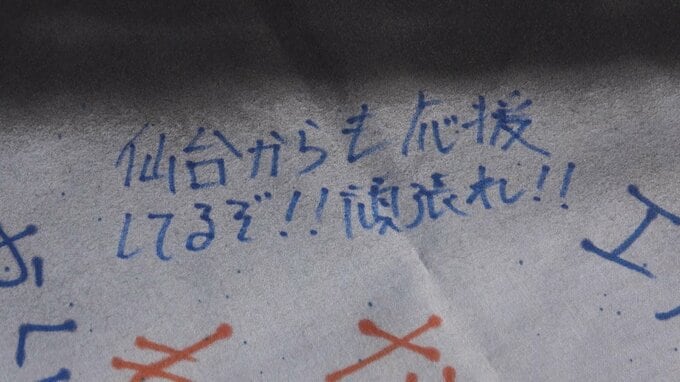 仙台からも応援
してるぞ!!頑張れ!!